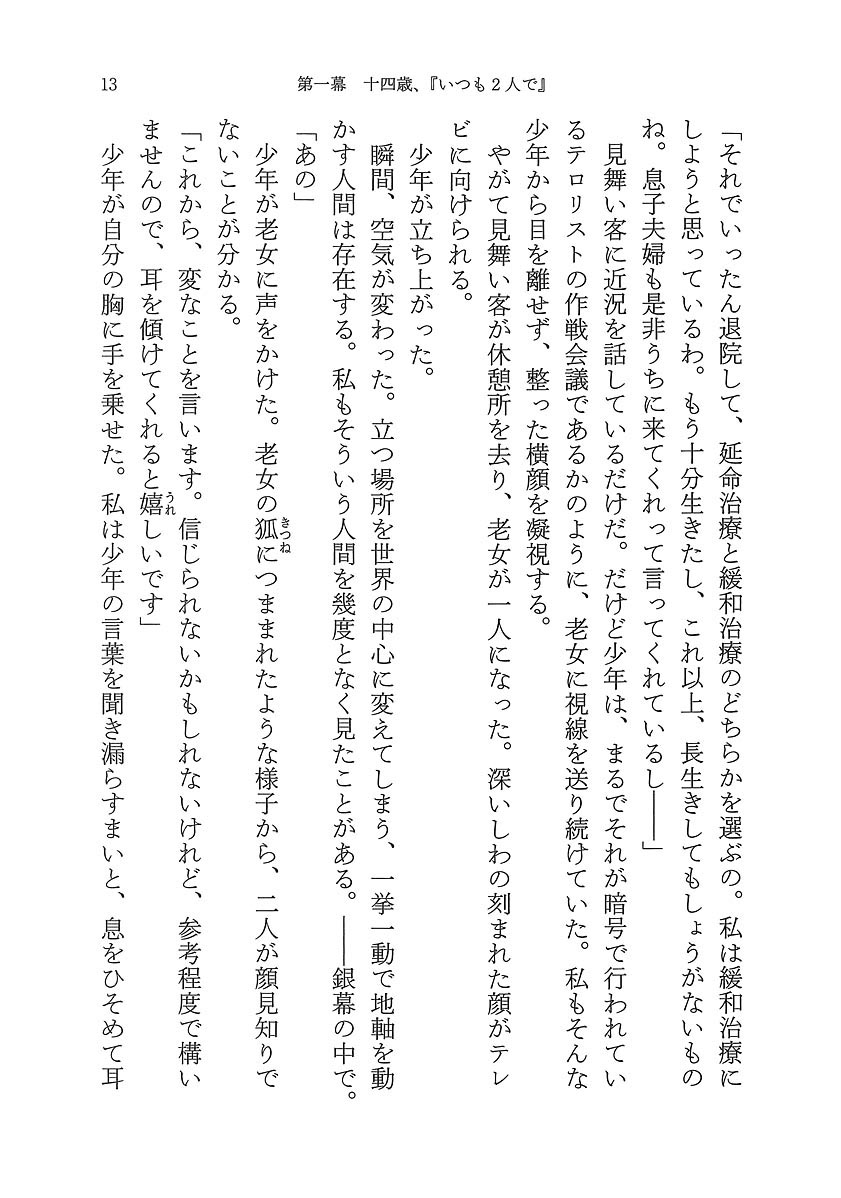 13
第一幕　十四歳、『いつも2人で』
「それでいったん退院して、延命治療と緩和治療のどちらかを選ぶの。私は緩和治療に
しようと思っているわ。もう十分生きたし、これ以上、長生きしてもしょうがないもの
ね。息子夫婦も是非うちに来てくれって言ってくれているし――」
　見舞い客に近況を話しているだけだ。だけど少年は、まるでそれが暗号で行われてい
るテロリストの作戦会議であるかのように、老女に視線を送り続けていた。私もそんな
少年から目を離せず、整った横顔を凝視する。
　やがて見舞い客が休憩所を去り、老女が一人になった。深いしわの刻まれた顔がテレ
ビに向けられる。
　少年が立ち上がった。
　瞬間、空気が変わった。立つ場所を世界の中心に変えてしまう、一挙一動で地軸を動
かす人間は存在する。私もそういう人間を幾度となく見たことがある。――銀幕の中で。
「あの」
　少年が老女に声をかけた。老女の狐きつねにつままれたような様子から、二人が顔見知りで
ないことが分かる。
「これから、変なことを言います。信じられないかもしれないけれど、参考程度で構い
ませんので、耳を傾けてくれると嬉うれしいです」
　少年が自分の胸に手を乗せた。私は少年の言葉を聞き漏らすまいと、息をひそめて耳